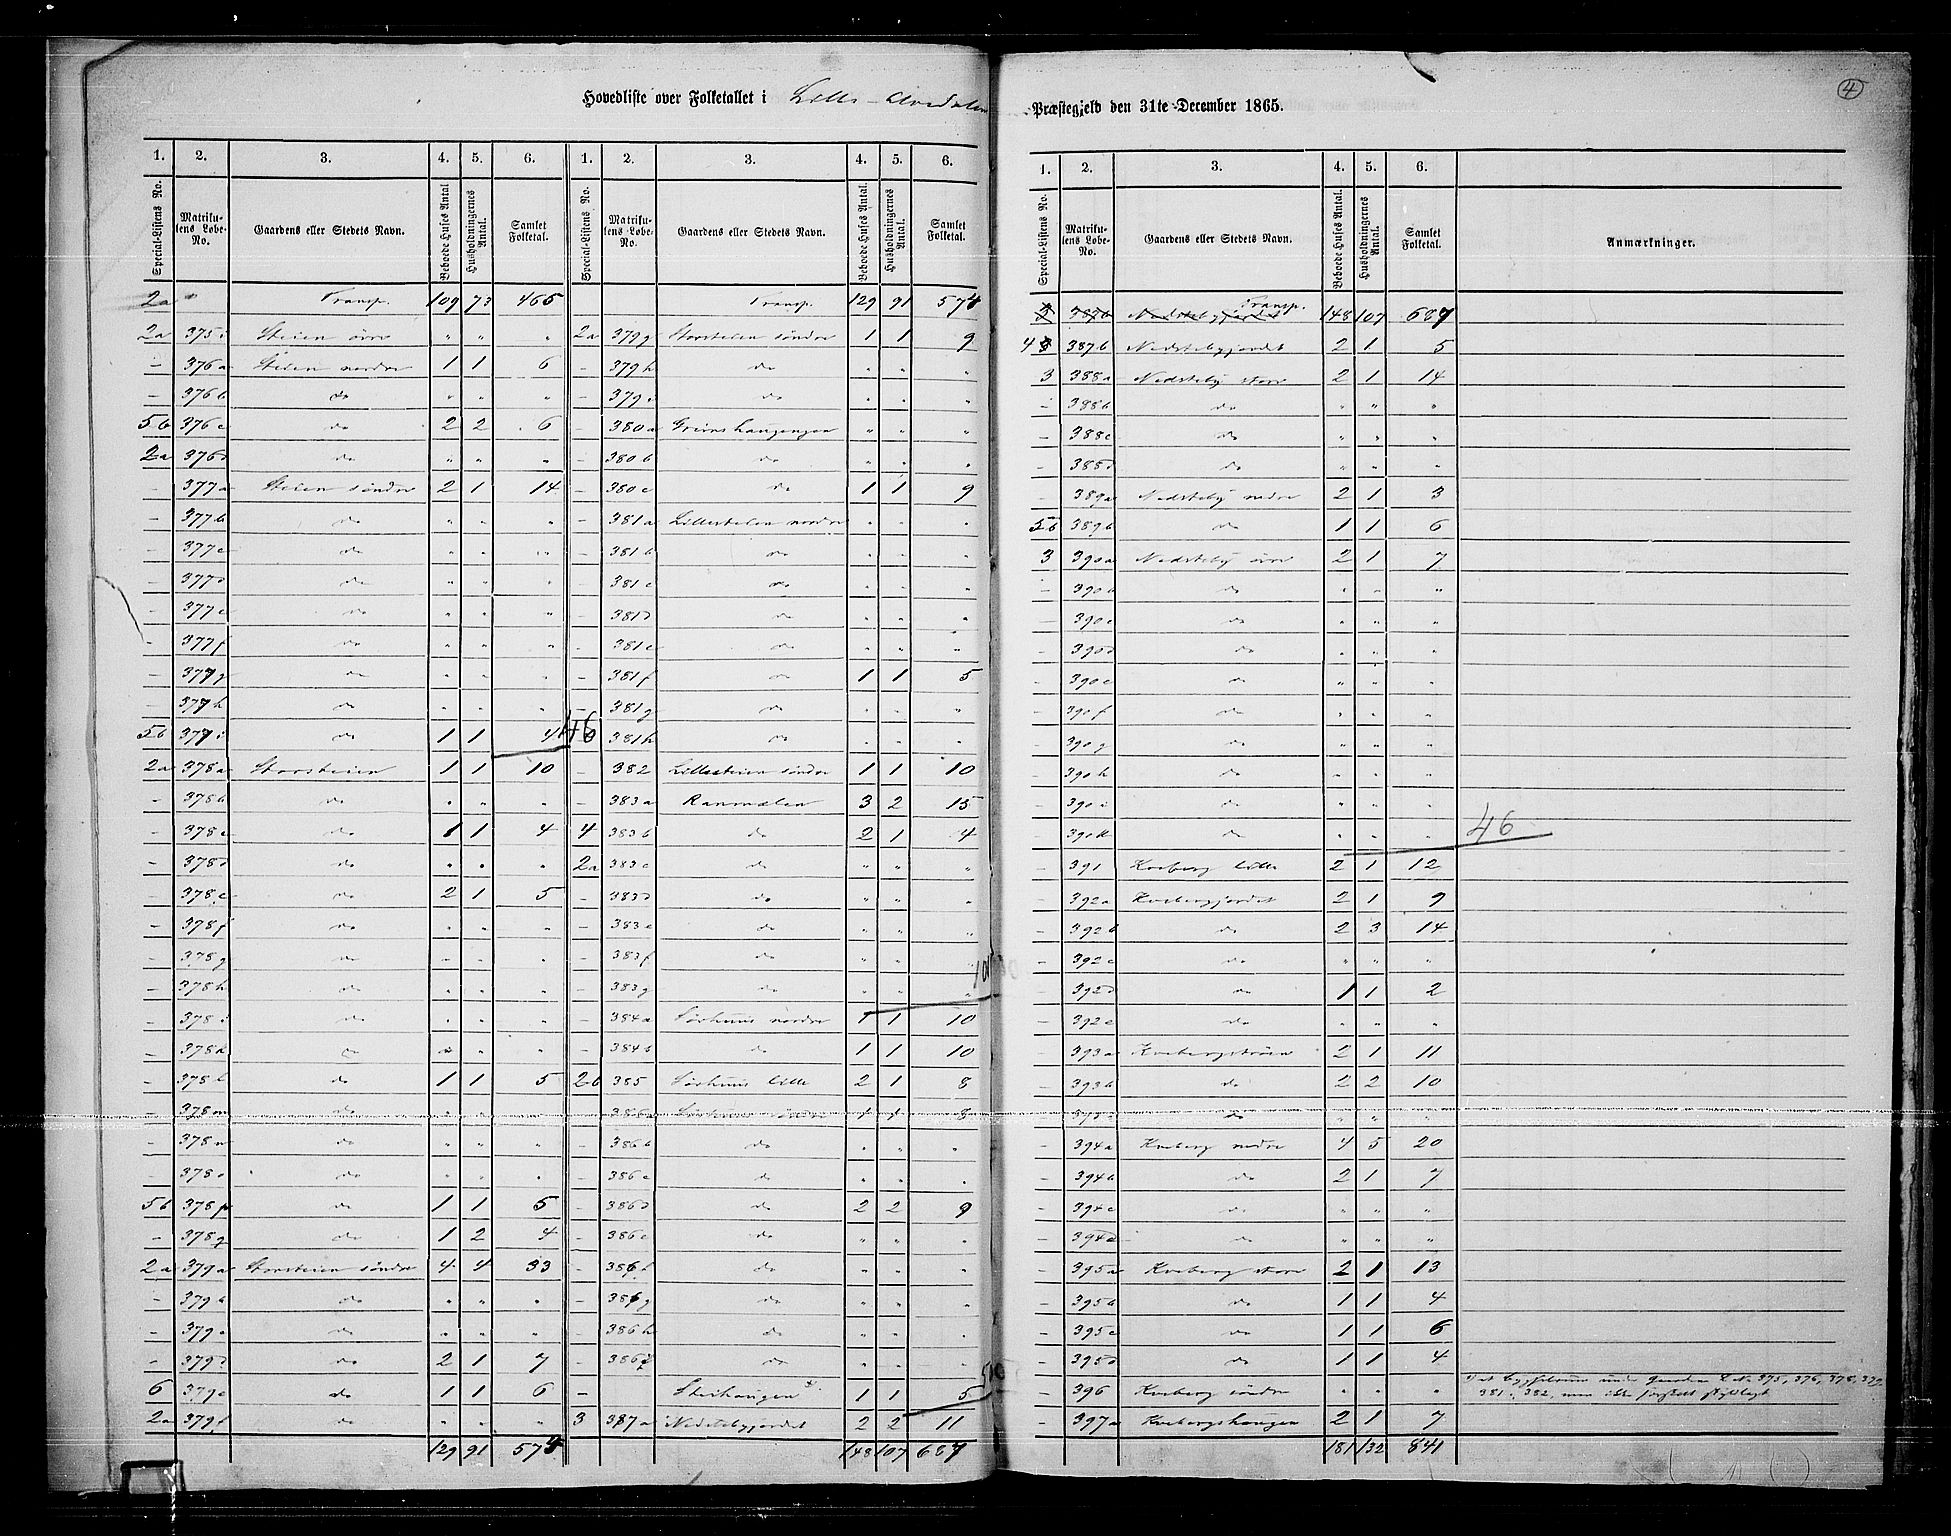 Hovedliste over Folketallet i Lille-Elvedalen Præstegjeld den 31te December 1865.
4
1. 2. 3. 4. 5. 6. 1. 2. 3. 4. 5. 6.
Special-Listens No. Matrikulens Løbe-No. Gaardens eller Stedets Navn. Beboede Huses Antal Husholdningernes Antal. Samlet Folketal. Special-Listens No. Matrikulens Løbe-No. Gaardens eller Stedets Navn. Beboede Huses Antal. Husholdningernes Antal. Samlet Folketal.
2a " Transp. 109 73 465 Transp. 129 91 574
2a 375i Steien øvre " " " 2a 379g Storsteien søndre 1 1 9
- 376a Steien nordre 1 1 6 - 379h do " " "
- 376b do " " " - 379i do " " "
5b 376c do 2 2 6 - 380a Grimshaugengen " " "
2a 376d do " " " - 380b do " " "
- 377a Steien søndre 2 1 14 - 380c do 1 1 9
- 377b do " " " - 381a Lillesteien nordre " " "
- 377c do " " " - 381b do " " "
- 377d do " " " - 381c do " " "
- 377e do " " " - 381d do " " "
- 377f do " " " - 381e do " " "
- 377g do " " " - 381f do 1 1 5
- 377h do " " " - 381g do " " "
5b 377i do 1 1 4 46 381h do " " "
2a 378a Storsteien 1 1 10 - 382 Lillesteien søndre 1 1 10
- 378b do " " " - 383a Ranmælen 3 2 15
- 378c do 1 1 4 4 383b do 2 1 4
- 378d do " " " 2a 383c do " " "
- 378e do 2 1 5 - 383d do " " "
- 378f do " " " - 383e do " " "
- 378g do " " " - 383f do " " "
- 378h do " " " - 383g do " " "
- 378i do " " " - 384a Sørhuus nordre 1 1 10
- 378k do " " " - 384b do 1 1 10
- 378l do 1 1 5 2b 385 Sørhuus lille 2 1 8
- 378m do " " " - 386a Sørhuus søndre 1 1 8
- 378n do " " " - 386b do " " "
- 378o do " " " - 386c do " " "
5b 378p do 1 1 5 - 386d do 2 2 9
- 378q do 1 2 4 - 386e do " " "
2a 379a Storsteien søndre 4 4 33 - 386f do " " "
- 379b do " " " - 386g do " " "
- 379c do " " " - 386h do " " "
- 379d do 2 1 7 - 386i do " " "
6 379e do 1 1 6 - Steihaugen 1 1 5
2a 379f do " " " 3 387a Nedstebygjordet 2 2 11
129 91 574 148 107 687
1. 2. 3. 4. 5. 6.
Special-Listens No. Matrikulens Løbe-No. Gaardens eller Stedets Navn. Beboede Huses Antal. Husholdningernes Antal. Samlet Folketal. Anmærkninger.
3 387b Nedstebygjordet Transp. 148 107 687
4 387b Nedstebygjordet 2 1 5
3 388a Nedsteby store 2 1 14
- 388b do " " "
- 388c do " " "
- 388d do " " "
- 389a Nedsteby nedre 2 1 3
5b 389b do 1 1 6
3 390a Nedsteby øvre 2 1 7
- 390b do " " "
- 390c do " " "
- 390d do " " "
- 390e do " " "
- 390f do " " "
- 390g do " " "
- 390h do " " "
- 390i do " " "
- 390k do " " " 46
- 391 Kveberg lille 2 1 12
- 392a Kvebergjordet 2 1 9
- 392b do 2 3 14
- 392c do " " "
- 392d do 1 1 2
- 392e do " " "
- 393a Kvebergstrøen 2 1 11
- 393b do 2 2 10
- 393c do " " "
- 394a Kveberg nedre 4 5 20
- 394b do 2 1 7
- 394c do " " "
- 394d do " " "
- 395a Kveberg store 2 1 13
- 395b do 1 1 4
- 395c do 1 1 6
- 395d do 1 1 4
- 396 Kveberg søndre " " "
- 397a Kvebergshaugen 2 1 7
181 132 841
375, 376, 378, 379
381, 382, men ikke